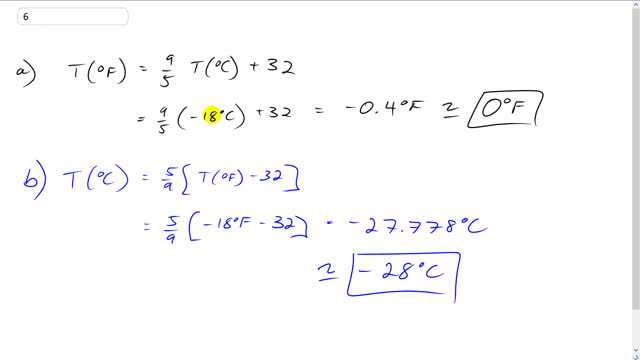 6
a) T(°F) = 9/5 T(°C) + 32
= 9/5 (-18°C) + 32 = -0.4°F ≃ 0°F
b) T(°C) = 5/9 [T(°F) - 32]
= 5/9 [-18°F - 32] = -27.778°C
≃ -28°C